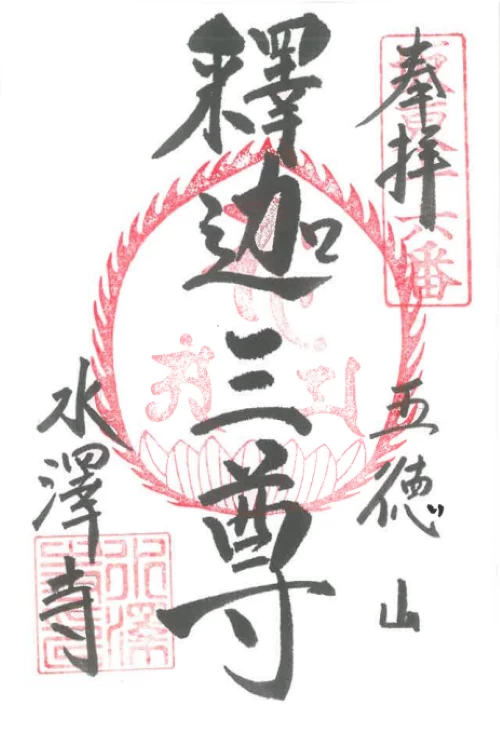 奉拝
五徳山
釋迦三尊
水澤寺
水澤寺